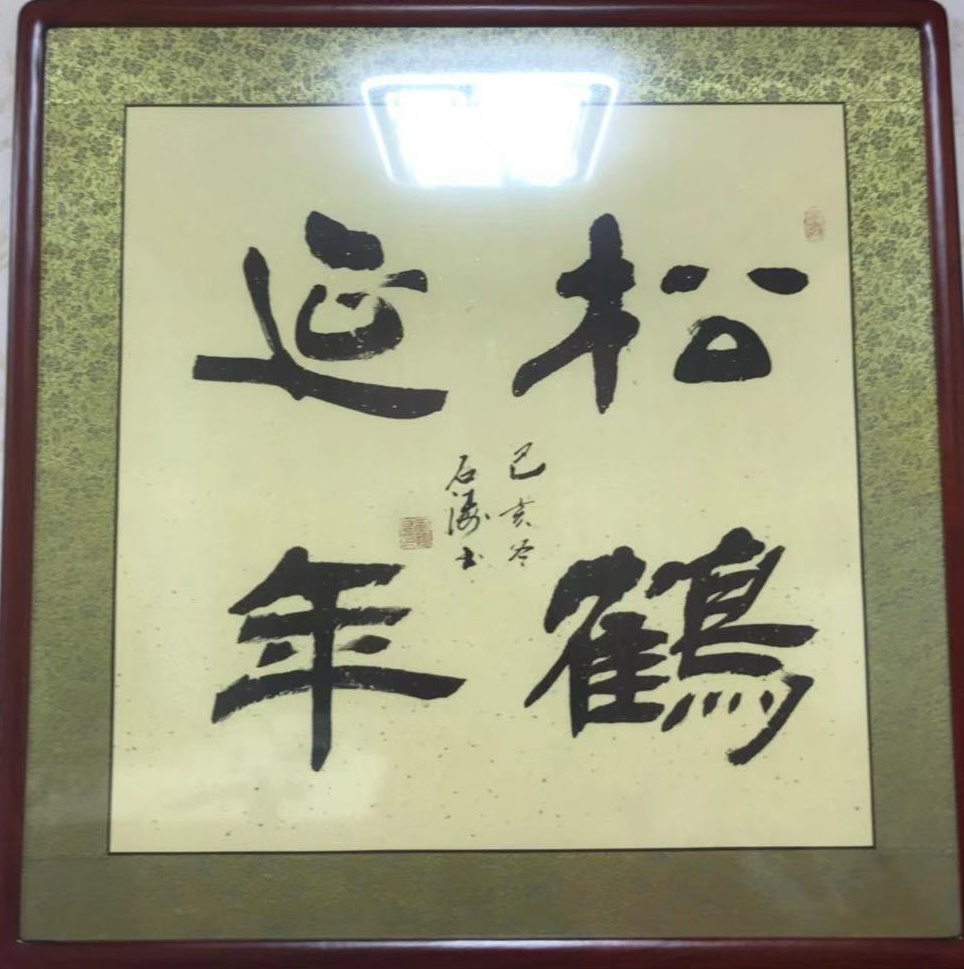 松鹤
延年
己亥冬
石海书